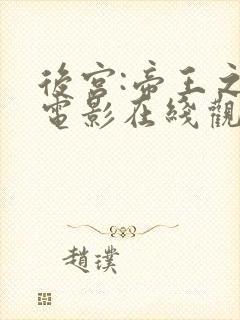 後宮:帝王之
電影在綫觀
趙璞